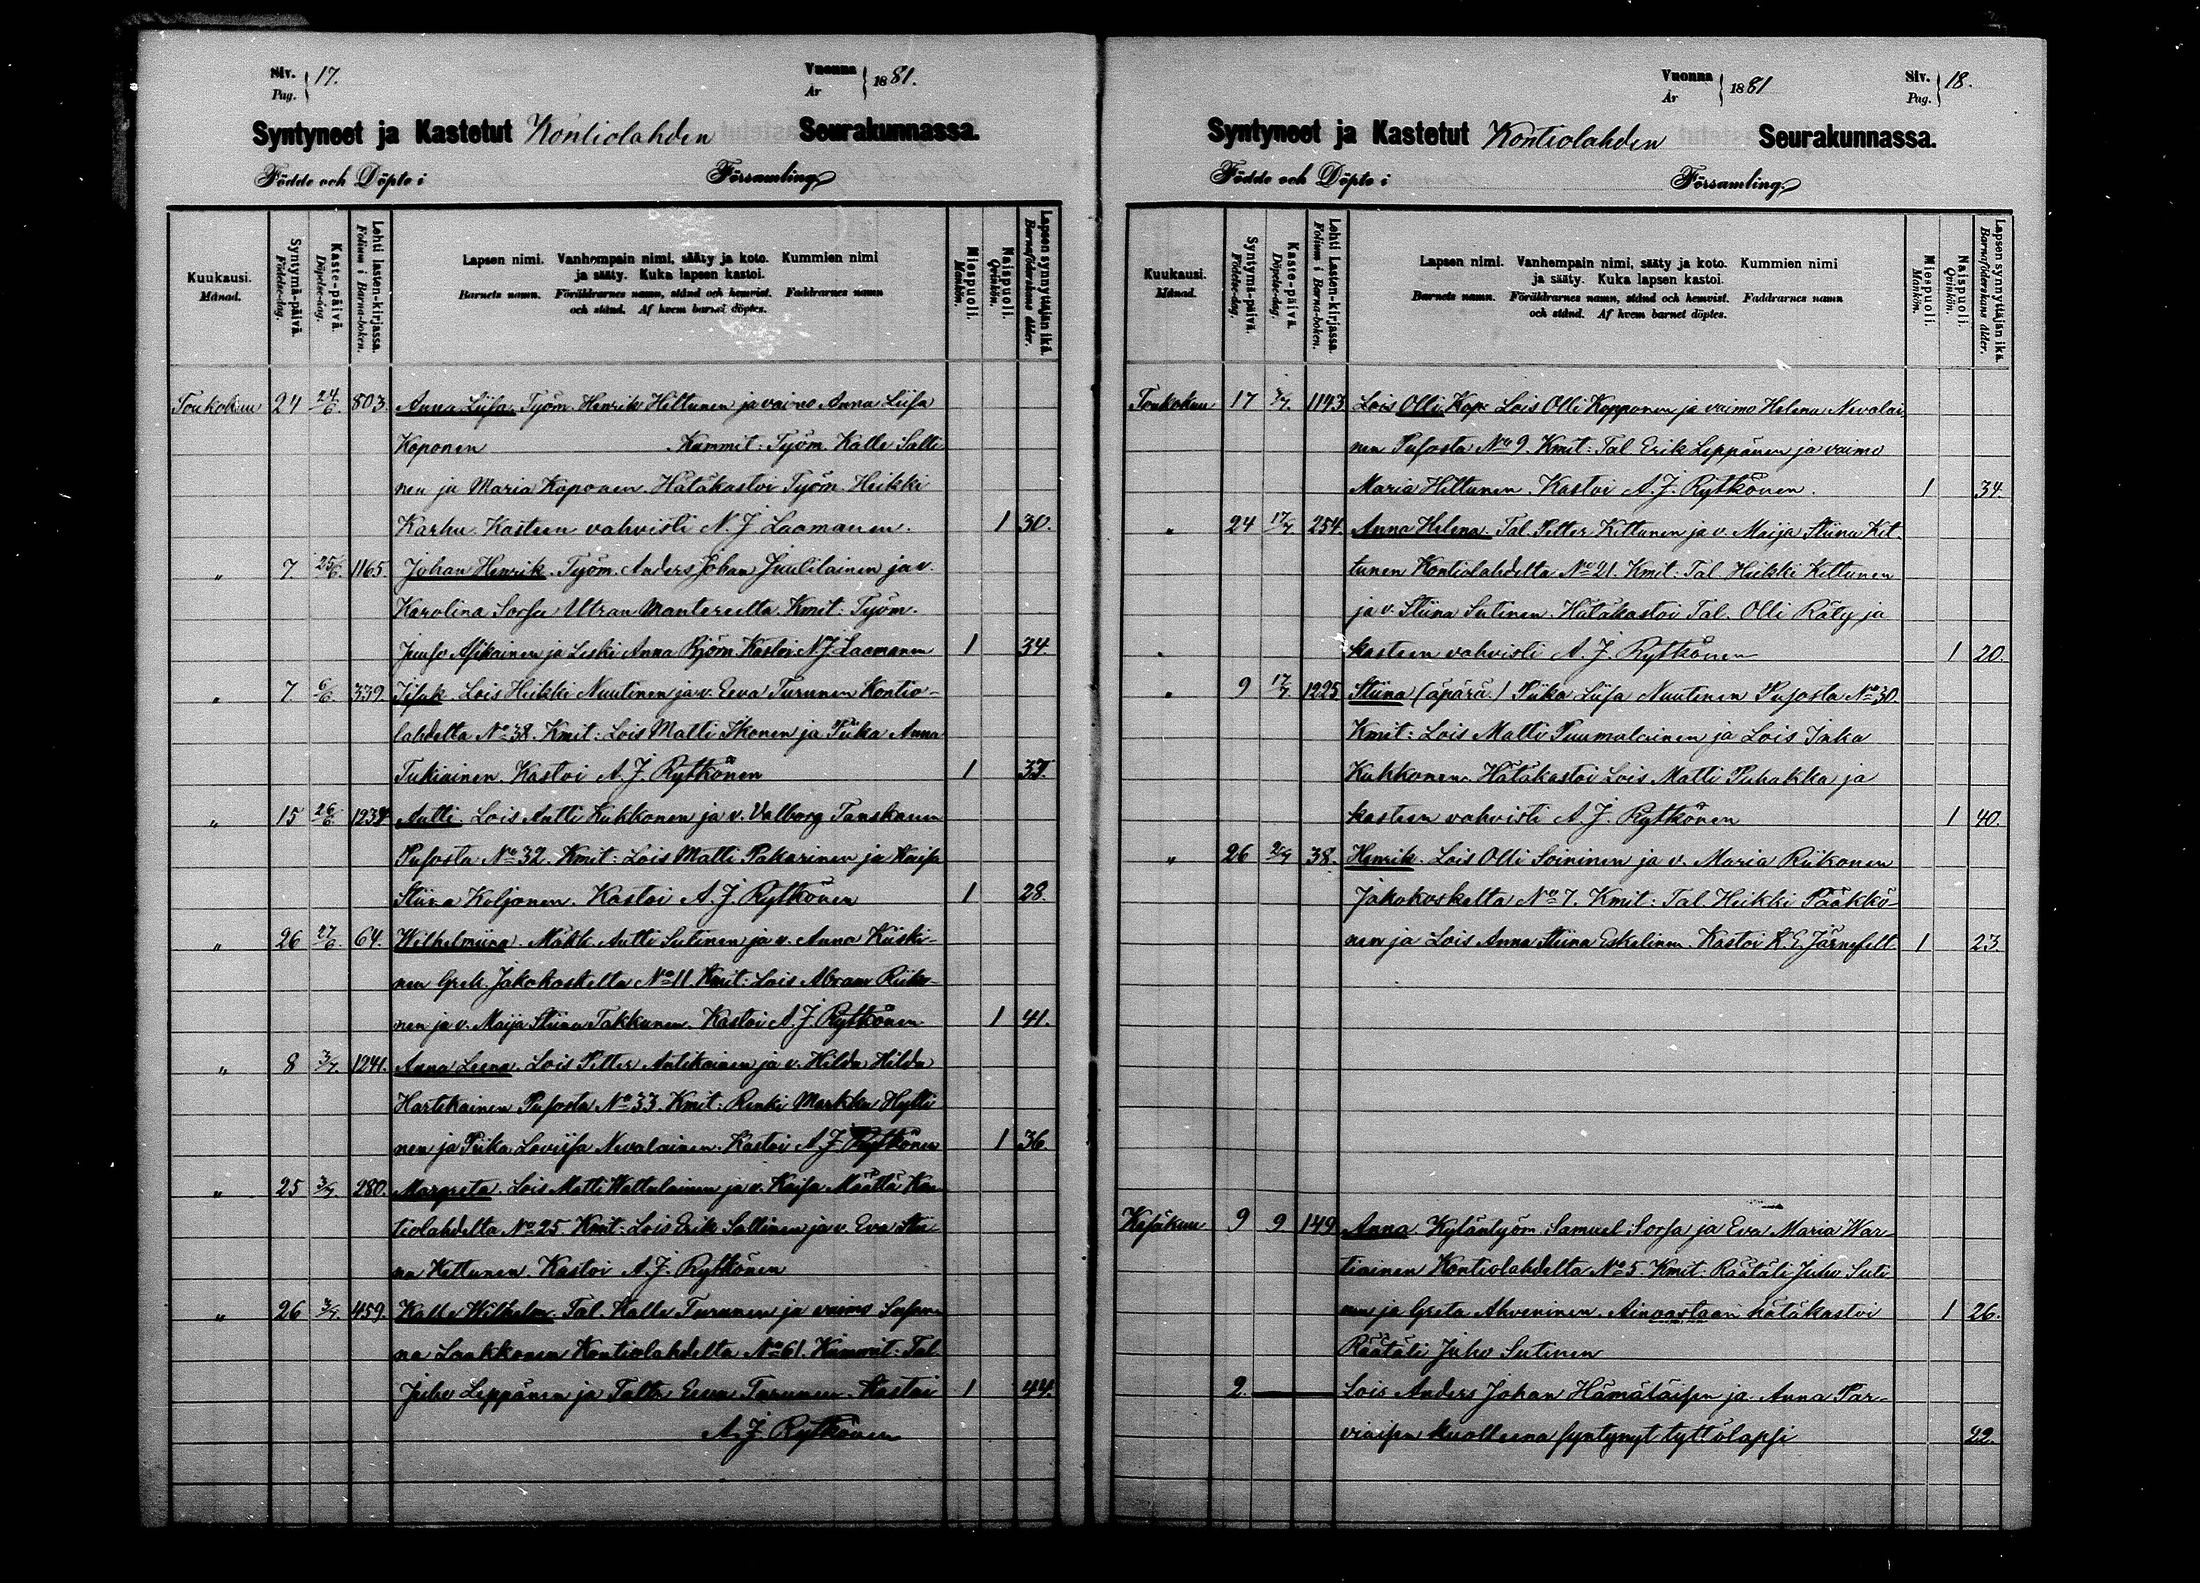 Siv. 17. Vuonna 1881.
Pag. År
Syntyneet ja Kastetut Kontiolahden Seurakunnassa.
Födde och Döpte i Församling
Kuukausi. Månad.
Syntymä-päivä. Födelse-dag.
Kaste-päivä. Döpelse-dag.
Lehti lasten-kirjassa. Folium i Barna-boken.
Lapsen nimi. Vanhempain nimi, sääty ja koto. Kummien nimi
ja sääty. Kuka lapsen kastoi.
Barnets namn. Föräldrarnes namn, stånd och hemvist. Faddrarnes namn
och stånd. Af hvem barnet döptes.
Miespuoli. Mankön.
Naispuoli. Qvinkön.
Lapsen synnyttäjän ikä. Barnaföderskans ålder.
Toukokuu 24 24/6. 503. Anna Liisa. Työm. Henrik Hiltunen ja vaimo Anna Liisa
Koponen Kummit: Työm. Kalle Salli
nen ja Maria Koponen. Hätäkastoi Työm. Heikki
Karhu. Kasteen vahvisti N. J. Laamanen. 1 30.
" 7. 25/6. 1165. Johan Henrik. Työm. Anders Johan Juulilainen ja v.
Karolina Sorsa Utran Mantereelta. Kmit: Työm.
Juuso Asikainen ja Leski Anna Björn. Kastoi N. J. Laamanen 1 34
" 7 6/6. 339. Isak. Lois Heikki Nuutinen ja v. Eeva Turunen Kontio-
lahdelta No 38. Kmit: Lois Matti Ikonen ja Piika Anna
Tukiainen. Kastoi A. J. Rytkönen 1
" 15 26/6. 1234 Antti. Lois Antti Kukkonen ja v. Valborg Tanskanen
Pusosta No 32. Kmit: Lois Matti Pakarinen ja Kaisa
Stiina Koljonen. Kastoi A. J. Rytkönen 1 28.
" 26 27/6. 64. Wilhelmiina. Mäkit. Antti Sutinen ja v. Anna Kiiski-
nen Jakokoskelta No 11. Kmit: Lois Abram Riiko-
nen ja v. Maija Stiina Takkunen. Kastoi A. J. Rytkönen 1 41.
" 8 3/7. 1241. Anna Leena. Lois Petter Antikainen ja v. Hilda Hilda
Hartikainen Pusosta No 33. Kmit: Renki Markku Hytti
nen ja Piika Loviisa Nevalainen. Kastoi A. J. Rytkönen 1 36.
" 25 3/7. 280. Margreta. Lois Matti Wattulainen ja v. Kaisa Määttä Kon
tiolahdelta No 25. Kmit: Lois Erik Sallinen ja v. Eva Stii-
na Kettunen. Kastoi A. J. Rytkönen
" 26 3/7. 459. Kalle Wilhelm. Tal. Kalle Turunen ja vaimo Susan-
na Laakkonen Kontiolahdelta No 61. Kummit: Tal.
Juho Leppänen ja Eeva Turunen. Kastoi 1 44.
A. J. Rytkönen
Vuonna 1881 Siv. 18.
År Pag.
Syntyneet ja Kastetut Kontiolahden Seurakunnassa.
Födde och Döpte i Församling.
Kuukausi. Månad.
Syntymä-päivä. Födelse-dag.
Kaste-päivä. Döpelse-dag.
Lehti lasten-kirjassa. Folium i Barna-boken.
Lapsen nimi. Vanhempain nimi, sääty ja koto. Kummien nimi
ja sääty. Kuka lapsen kastoi.
Barnets namn. Föräldrarnes namn, stånd och hemvist. Faddrarnes namn
och stånd. Af hvem barnet döptes.
Miespuoli. Mankön.
Naispuoli. Qvinkön.
Lapsen synnyttäjän ikä. Barnaföderskans ålder.
Toukokuu 17 1143 Lois Olli Kop. Lois Olli Kopponen ja vaimo Helena Nevalai
nen Pusosta No 9. Kmit: Tal. Erik Leppänen ja vaimo
Maria Hiltunen. Kastoi A. J. Rytkönen. 1 34.
" 24 17/7. 254. Anna Helena. Tal. Petter Kettunen ja v. Maija Stiina Ket
tunen Kontiolahdelta No 21. Kmit: Tal. Heikki Kettunen
ja v. Stiina Sutinen. Hätäkastoi Tal. Olli Räty ja
" kasteen vahvisti A. J. Rytkönen 1 20.
" 9 17/7. 1225 Stiina (äpärä.) Piika Liisa Nuutinen Pusosta No 30.
Kmit: Lois Matti Puumalainen ja Lois Inka
Kukkonen. Hätäkastoi Lois Matti Puhakka ja
kasteen vahvisti A. J. Rytkönen 1 40.
" 26 2/7 38. Henrik. Lois Olli Soininen ja v. Maria Riikonen
Jakokoskelta No 7. Kmit: Tal. Heikki Pääkkö-
nen ja Lois Anna Stiina Eskelinen. Kastoi K. E. Järnefelt. 1 23
Kesäkuu 9 9 149 Anna Kyläntyöm. Samuel Sorsa ja Eva Maria War-
tiainen Kontiolahdelta No 5. Kmit: Räätäli Juho Suti
nen ja Greta Ahveninen. Ainoastaan hätäkastoi 1 26.
Räätäli Juho Sutinen
2. Lois Anders Johan Hämäläisen ja Anna Par-
viaisen kuolleena syntynyt tyttölapsi 22.